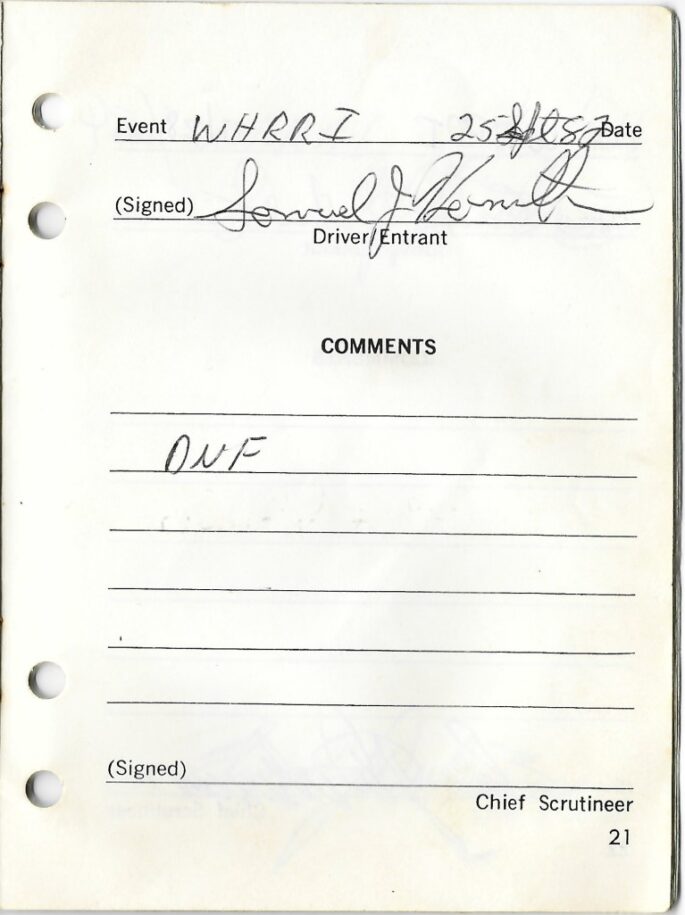 Event WHRRI 25 Sept 82 Date
(Signed) Samuel J
Driver/Entrant
COMMENTS
DNF
(Signed)
Chief Scrutineer
21